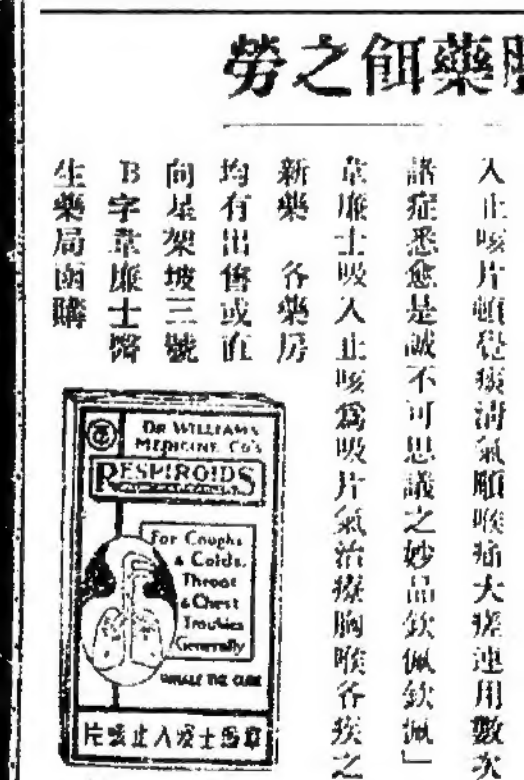 勞之餌藥
入止咳片頓覺痰清氣順喉痛大瘥連用數次
諸症悉愈是誠不可思議之妙品欽佩欽佩」
韋廉士吸入止咳爲吸片氣治療胸喉各疾之
新藥 各藥房
均有出售或直
向星架坡三號
B字韋廉士醫
生藥局函購
DR WILLIAMS
MEDICINE CO'S
RESPIROIDS
For Coughs
& Colds,
Throat
& Chest
Troubles
Generally
INHALE THE CURE
片咳止入吸士廉韋